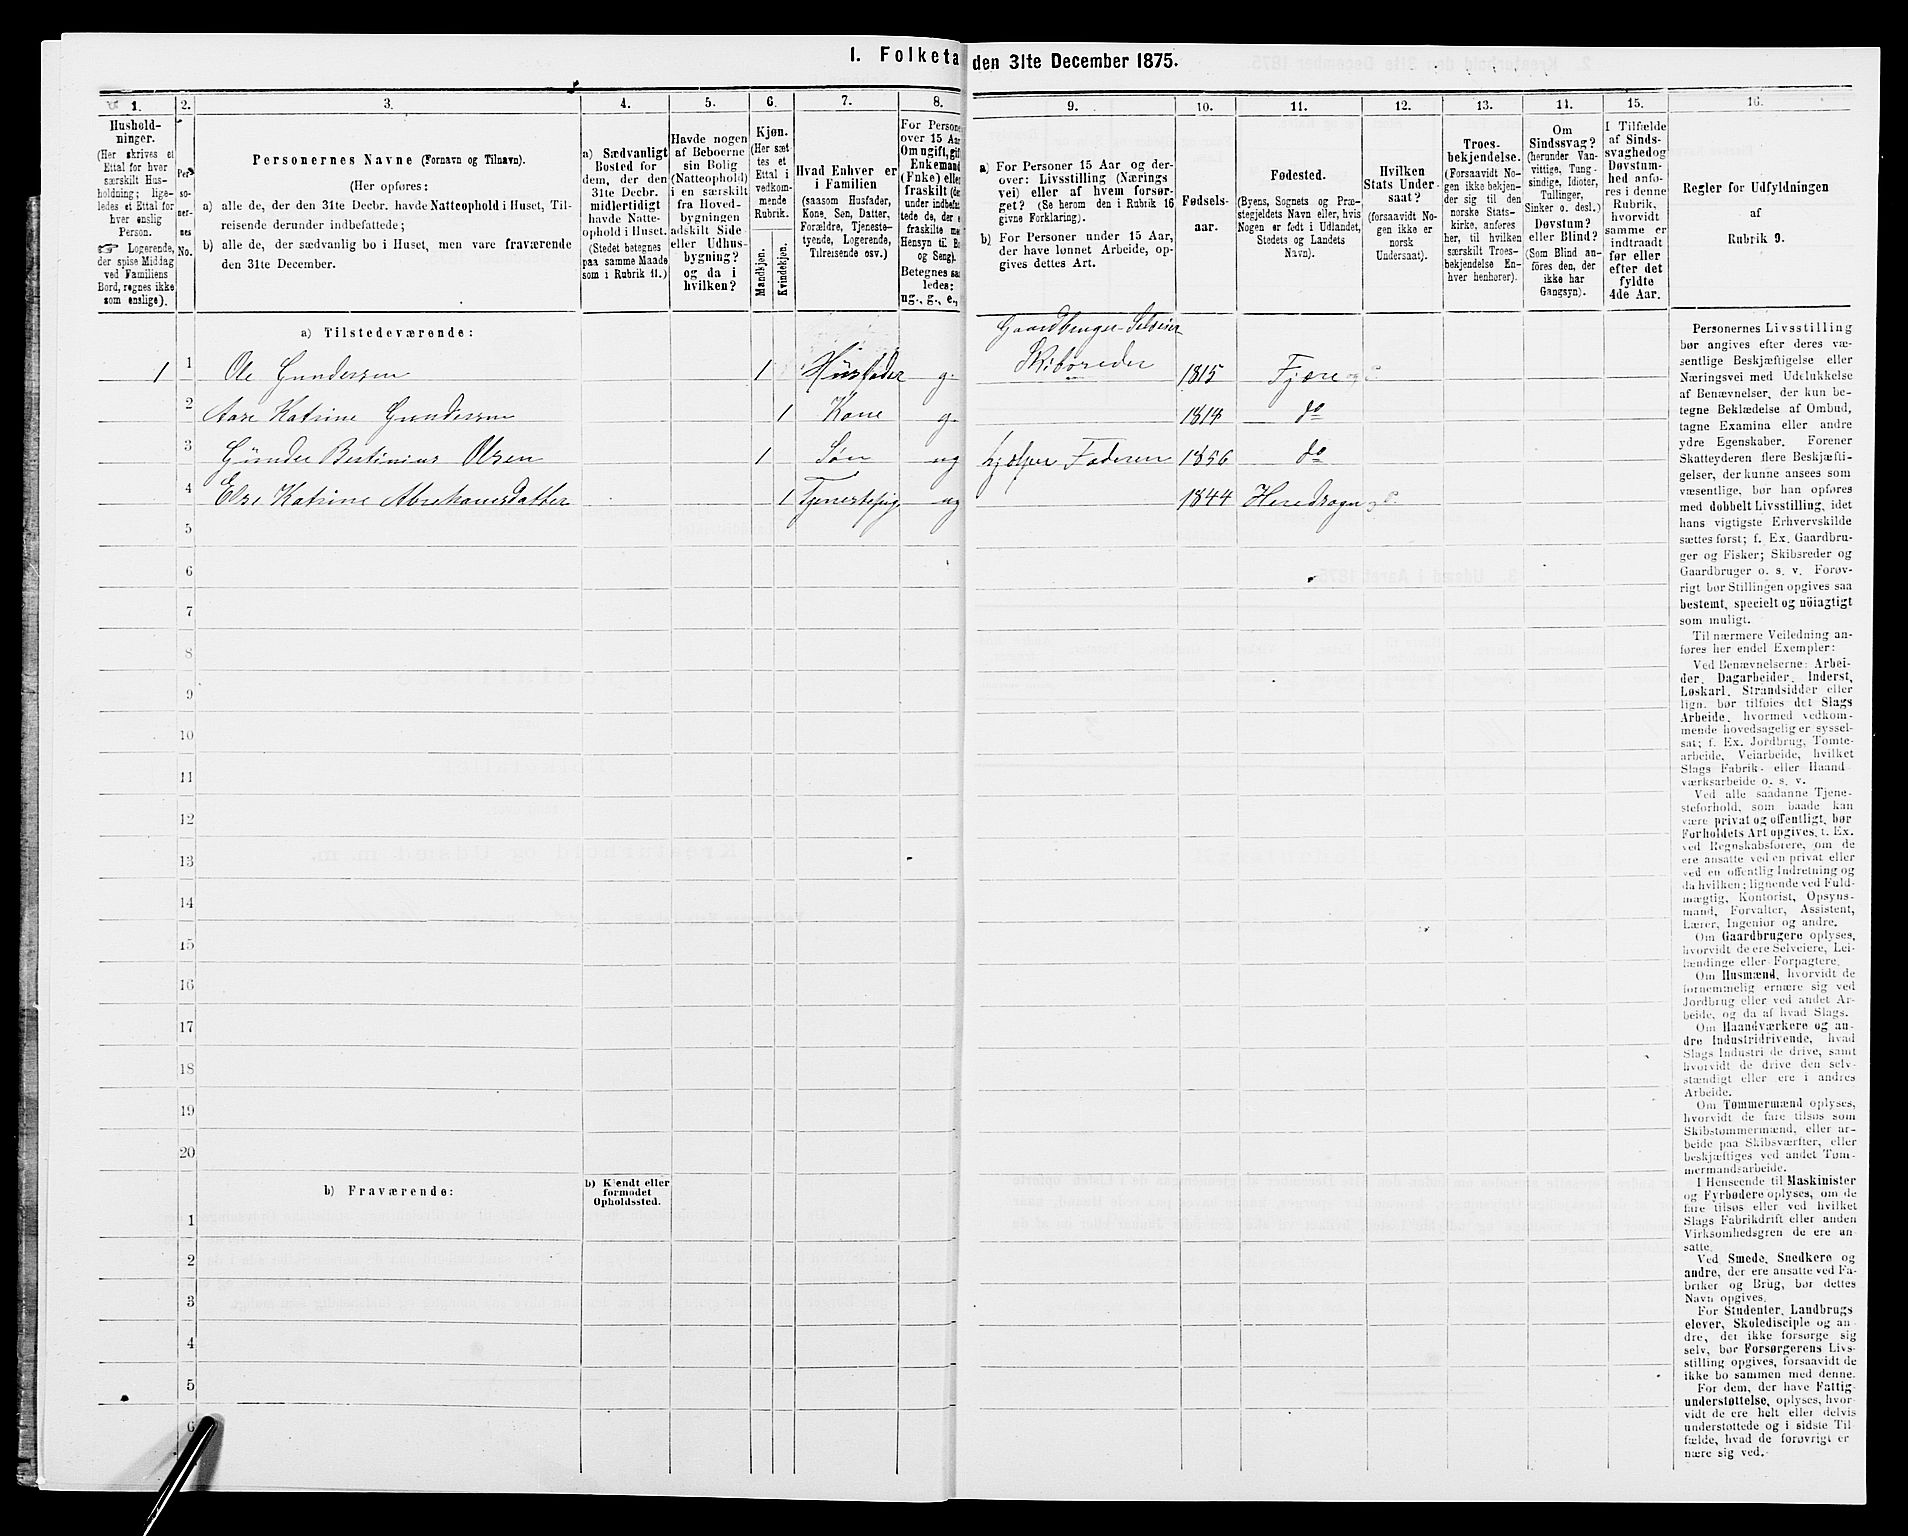 I. Folketa den 31te December 1875.
1. 2. 3. 4. 5. 6. 7. 8. 9. 10. 11. 12. 13. 14. 15. 16.
Hushold-
ninger.
(Her skrives et
Ettal for hver
særskilt Hus-
holdning; lige-
ledes et Ettal for
hver enslig
Person.
☞ Logerende,
der spise Middag
ved Familiens
Bord, regnes ikke
som enslige).
Per
so-
ner-
nes
No.
Personernes Navne (Fornavn og Tilnavn).
(Her opføres:
a) alle de, der den 31te Decbr. havde Natteophold i Huset, Til-
reisende derunder indbefattede;
b) alle de, der sædvanlig bo i Huset, men vare fraværende
den 31te December.
a) Sædvanligt
Bosted for
dem, der den
31te Decbr.
midlertidigt
havde Natte-
ophold i Huset.
(Stedet betegnes
paa samme Maade
som i Rubrik 11.)
Havde nogen
af Beboerne
sin Bolig
(Natteophold)
i en særskilt
fra Hoved-
bygningen
adskilt Side-
eller Udhus-
bygning?
og da i
hvilken?
Kjøn.
(Her sæt
tes et
Ettal i
vedkom-
mende
Rubrik.
Mandkjøn.
Kvindekjøn.
Hvad Enhver er
i Familien
(saasom Husfader,
Kone, Søn, Datter,
Forældre, Tjeneste-
tyende, Logerende,
Tilreisende osv.)
For Persone
over 15 Aar
Om ugift, gift
Enkemand
(Enke) elle
fraskilt (de
under indbefa
tede de, der e
fraskilte me
Hensyn til B
og Seng).
Betegnes saa
ledes:
ug., g., e.,
a) For Personer 15 Aar og der-
over: Livsstilling (Nærings
vei) eller af hvem forsør-
get? (Se herom den i Rubrik 16
givne Forklaring).
b) For Personer under 15 Aar,
der have lønnet Arbeide, op-
gives dettes Art.
Fødsels-
aar.
Fødested.
(Byens, Sognets og Præ-
stegjeldets Navn eller, hvis
Nogen er født i Udlandet,
Stedets og Landets
Navn).
Hvilken
Stats Under-
saat?
(forsaavidt No-
gen ikke er
norsk
Undersaat).
Troes-
bekjendelse.
(Forsaavidt No-
gen ikke bekjen-
der sig til den
norske Stats-
kirke, anføres
her, til hvilken
særskilt Troes-
bekjendelse En-
hver henhører).
Om
Sindssvag?
(herunder Van-
vittige, Tung-
sindige, Idioter,
Tullinger,
Sinker o. desl.)
Døvstum?
eller Blind?
(Som Blind an-
føres den, der
ikke har
Gangsyn).
I Tilfælde
af Sinds-
svaghed og
Døvstum-
hed anfø-
res i denne
Rubrik,
hvorvidt
samme er
indtraadt
før eller
efter det
fyldte
4de Aar.
Regler for Udfyldningen
af
Rubrik 9.
a) Tilstedeværende:
Gaardbruger Selveier
1 1 Ole Gundersen 1 Husfader g. Skibsreder 1815 Fjære
2 Aase Katrine Gundersen 1 Kone g. do
3 Gunder Bertinius Olsen 1 Søn ug hjælper Faderen 1856 do
4 Else Katrine Abrahamsdatter 1 ug 1844
5
6
7
8
9
10
11
12
13
14
15
16
17
18
19
20
b) Fraværende:
b) Kjendt eller
formodet
Opholdssted.
1
2
3
4
5
6
Personernes Livsstilling
bør angives efter deres væ-
sentlige Beskjæftigelse eller
Næringsvei med Udelukkelse
af Benævnelser, der kun be-
tegne Beklædelse af Ombud,
tagne Examina eller andre
ydre Egenskaber. Forener
Skatteyderen flere Beskjæfti-
gelser, der kunne ansees som
væsentlige, bør han opføres
med dobbelt Livsstilling, idet
hans vigtigste Erhvervskilde
sættes først; f. Ex. Gaardbru-
ger og Fisker; Skibsreder og
Gaardbruger o. s. v. Forøv-
rigt bør Stillingen opgives saa
bestemt, specielt og nöiagtigt
som muligt.
Til nærmere Veiledning an-
føres her endel Exempler:
Ved Benævnelserne: Arbei-
der, Dagarbeider, Inderst,
Løskarl, Strandsidder eller
lign. bør tilføies det Slags
Arbeide, hvormed vedkom-
mende hovedsagelig er syssel-
sat; f. Ex. Jordbrug, Tomte-
arbeide, Veiarbeide, hvilket
Slags Fabrik- eller Haand
værksarbeide o. s. v.
Ved alle saadanne Tjene-
steforhold, som baade kan
være privat og offentligt, bør
Forholdets Art opgives, t. Ex.
ved Regnskabsførere, om de
ere ansatte ved en privat eller
ved en offentlig Indretning og
da hvilken; lignende ved Fuld-
mægtig, Kontorist, Opsyns-
mand, Forvalter, Assistent,
Lærer, Ingeniør og andre.
Om Gaardbrugere oplyses,
hvorvidt de ere Selveiere, Lei-
lændinge eller Forpagtere.
Om Husmænd, hvorvidt de
fornemmelig ernære sig ved
Jordbrug eller ved andet Ar-
beide, og da af hvad Slags.
Om Haandværkere og an-
dre Industridrivende, hvad
Slags Industri de drive, samt
hvorvidt de drive den selv-
stændigt eller ere i andres
Arbeide.
Om Tømmermænd oplyses,
hvorvidt de fare tilsøs som
Skibstømmermænd, eller ar-
beide paa Skibsværfter, eller
beskjæftiges ved andet Tøm-
mermandsarbeide.
I Henseende til Maskinister
og Fyrbødere oplyses, om de
fare tilsøs eller ved hvilket
Slags Fabrikdrift eller anden
Virksomhedsgren de ere an-
satte.
Ved Smede, Snedkere og
andre, der ere ansatte ved Fa-
briker og Brug, bør dettes
Navn opgives.
For Studenter, Landbrugs
elever, Skoledisciple og an-
dre, der ikke forsørge sig
selv, bør Forsørgerens Livs-
stilling opgives, forsaavidt de
ikke bo sammen med denne.
For dem, der have Fattig-
understøttelse, oplyses, hvor-
vidt de ere helt eller delvis
understøttede og i sidste Til-
fælde, hvad de forøvrigt er
nære sig ved.